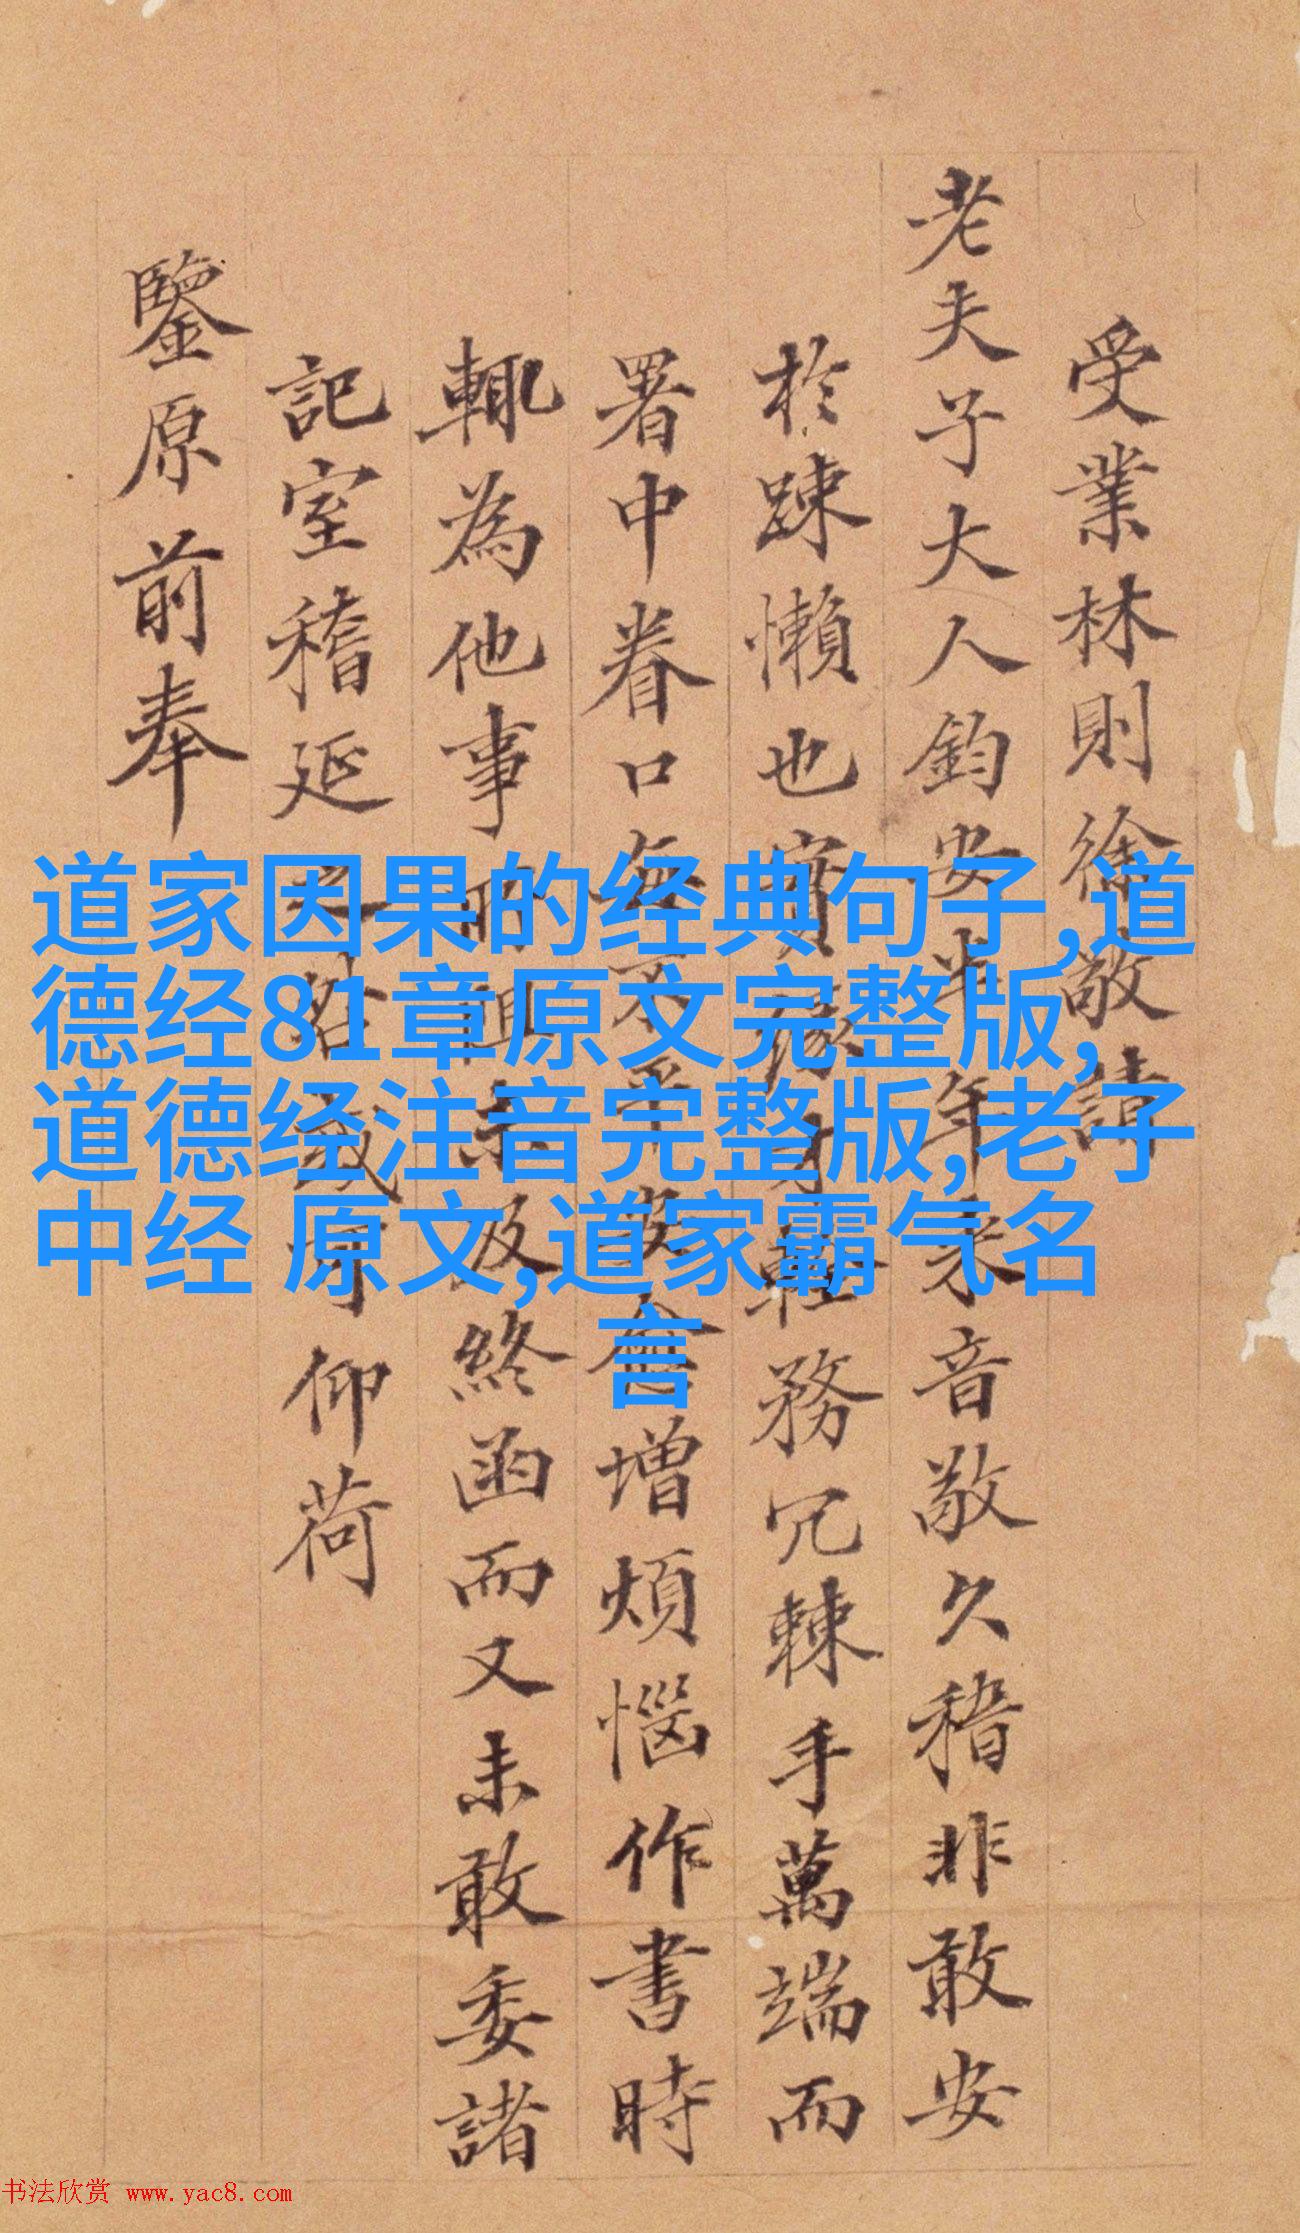 受業林則徐敬請
老夫子大人鈞安半年來音敬久稽非敢安
於踈懶也實緣才輕務冗棘手萬端而
署中眷口每不平安愈增煩惱作書時
輒為他事所阻未及終函而又未敢委諸
記室稽延之咎或可仰荷
鑒原前奉
道家因果的经典句子,道
德经81章原文完整版,
道德经注音完整版,老子
中经 原文,道家霸气名
言
书法欣赏 www.yac8.com